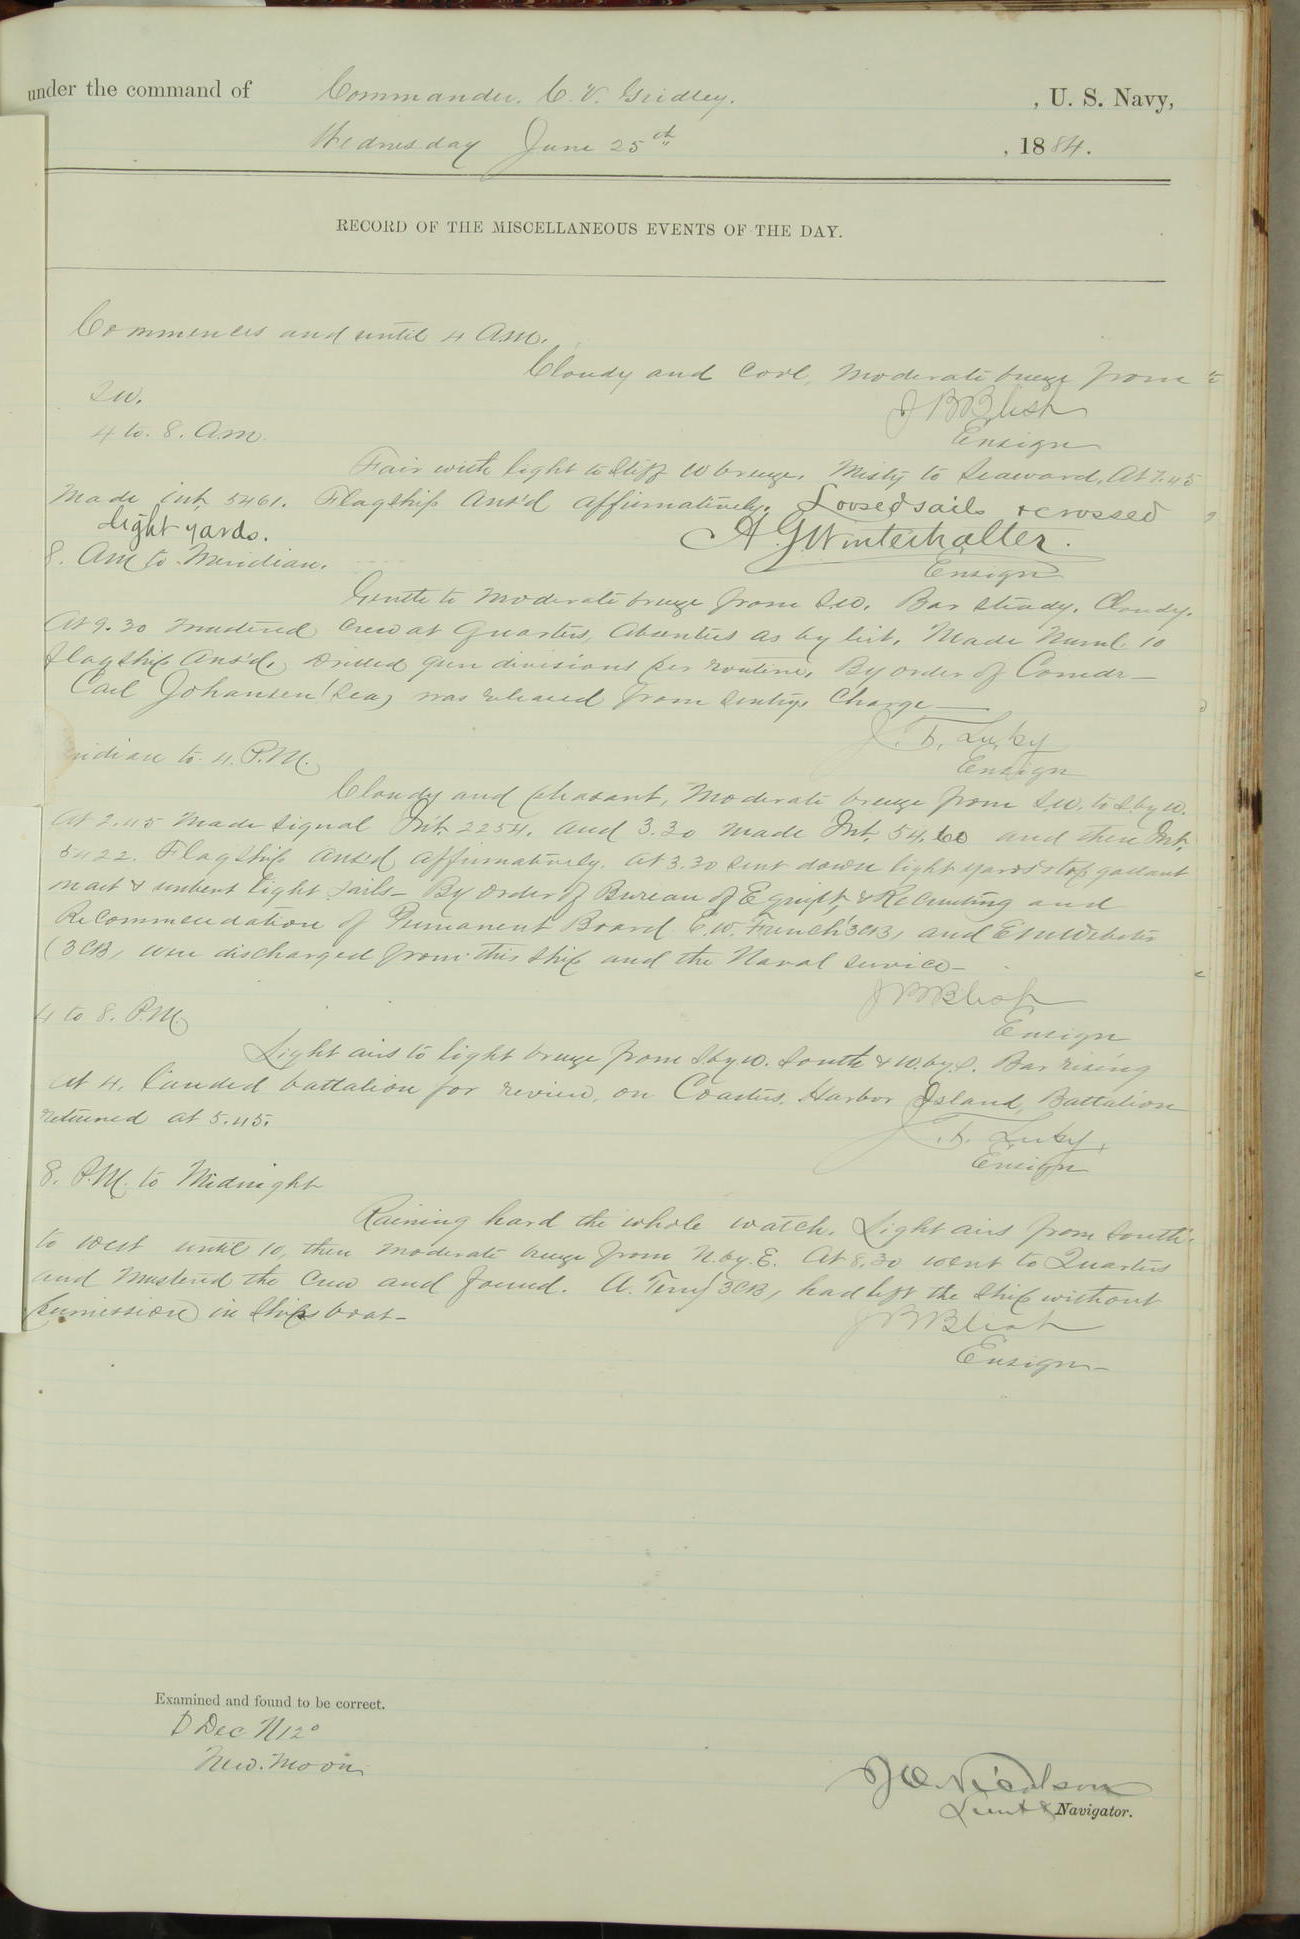 under the command of Commander. C. V. Gridley. , U. S. Navy,
Wednesday June 25th , 1884.
RECORD OF THE MISCELLANEOUS EVENTS OF THE DAY.
Commences and until 4 A.M.
Cloudy and cool, Moderate breeze from
S.W.
J B Blish
4 to. 8. A.M.
Ensign
Fair with light to stiff W breeze. Misty to Seaward. At 7.45
Made Int. 5461. Flagship Ans'd affirmatively. Loosed sails & crossed
light yards.
A G Winterhalter.
Ensign
8. AM to Meridian.
Gentle to Moderate breeze from S.W. Bar steady. Cloudy.
At 9.30 mustered crew at Quarters, Absentees as by list. Made Numl. 10
flagship Ans'd, Drilled gun divisions per routine. By order of Comdr—
Carl Johansen (Sea) was released from sentry's charge—
J. F. Luby
Ensign
ridian to 4. P.M.
Cloudy and pleasant, Moderate breeze from S.W. to S.by W.
At 2.45 Made Signal Int. 2254. and 3.30 made Int. 54.60 and then Int.
5422. Flagship Ans'd affirmatively. At 3.30 sent down light yards & top gallant
mast & unbent light sails— By order of Bureau of Equipt. & Recruiting and
Recommendation of Permanent Board E. W. French (3CB) and E M Webster
(3CB) were discharged from this ship and the Naval service—
J B Blish
Ensign
4 to 8. P.M.
Light airs to light breeze from S.by W. South & W.by S. Bar rising
At 4. landed battalion for review, on Coasters Harbor Island, Battalion
returned at 5.45.
J. F. Luby.
Ensign
8. P.M. to Midnight
Raining hard the whole watch. Light airs from South
to West until 10, then moderate breeze from N.by.E. At 8.30 went to Quarters
and Mustered the Crew and found. A. Terry 3CB, had left the Ship without
permission in Ships boat—
J B Blish
Ensign—
Examined and found to be correct.
D Dec N12°
New. Moon
J O Nicholson
Lieut & Navigator.